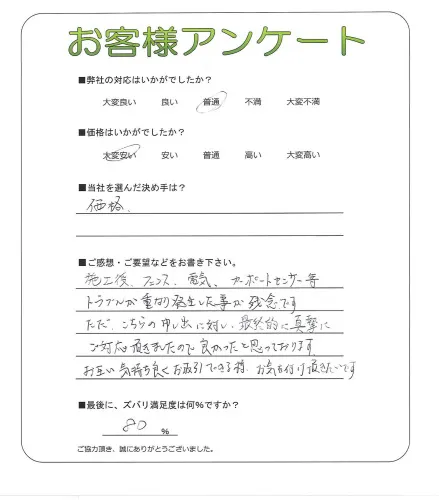 お客様アンケート
■弊社の対応はいかがでしたか？
大変良い 良い 普通 不満 大変不満
■価格はいかがでしたか？
大変安い 安い 普通 高い 大変高い
■当社を選んだ決め手は？
価格、
■ご感想・ご要望などをお書き下さい。
施工後、フェンス、電気、カーポートセンサー等
トラブルが重なり発生した事が残念です
ただ、こちらの申し出に対し、最終的に真摯に
ご対応頂きましたので良かったと思っております
お互い気持ち良くお取引できる様、お気を付け頂きたいです
■最後に、ズバリ満足度は何％ですか？
80 ％
ご協力頂き、誠にありがとうございました。